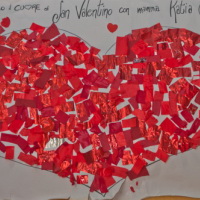 il CUORE di San Valentino con mamma Katia